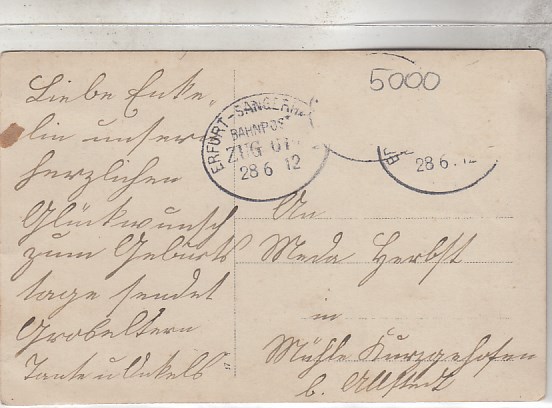 Liebe Enke-
lin unsern
herzlichen
Glückwunsch
zum Geburts
tage sendet
Großeltern
Tante u Onkels
5000
ERFURT-SANGERH
BAHNPOST
ZUG
28 6 12
28 6. 12
An
Meda Herbst
in
Mühle Kurzgehofen
b. Allstedt